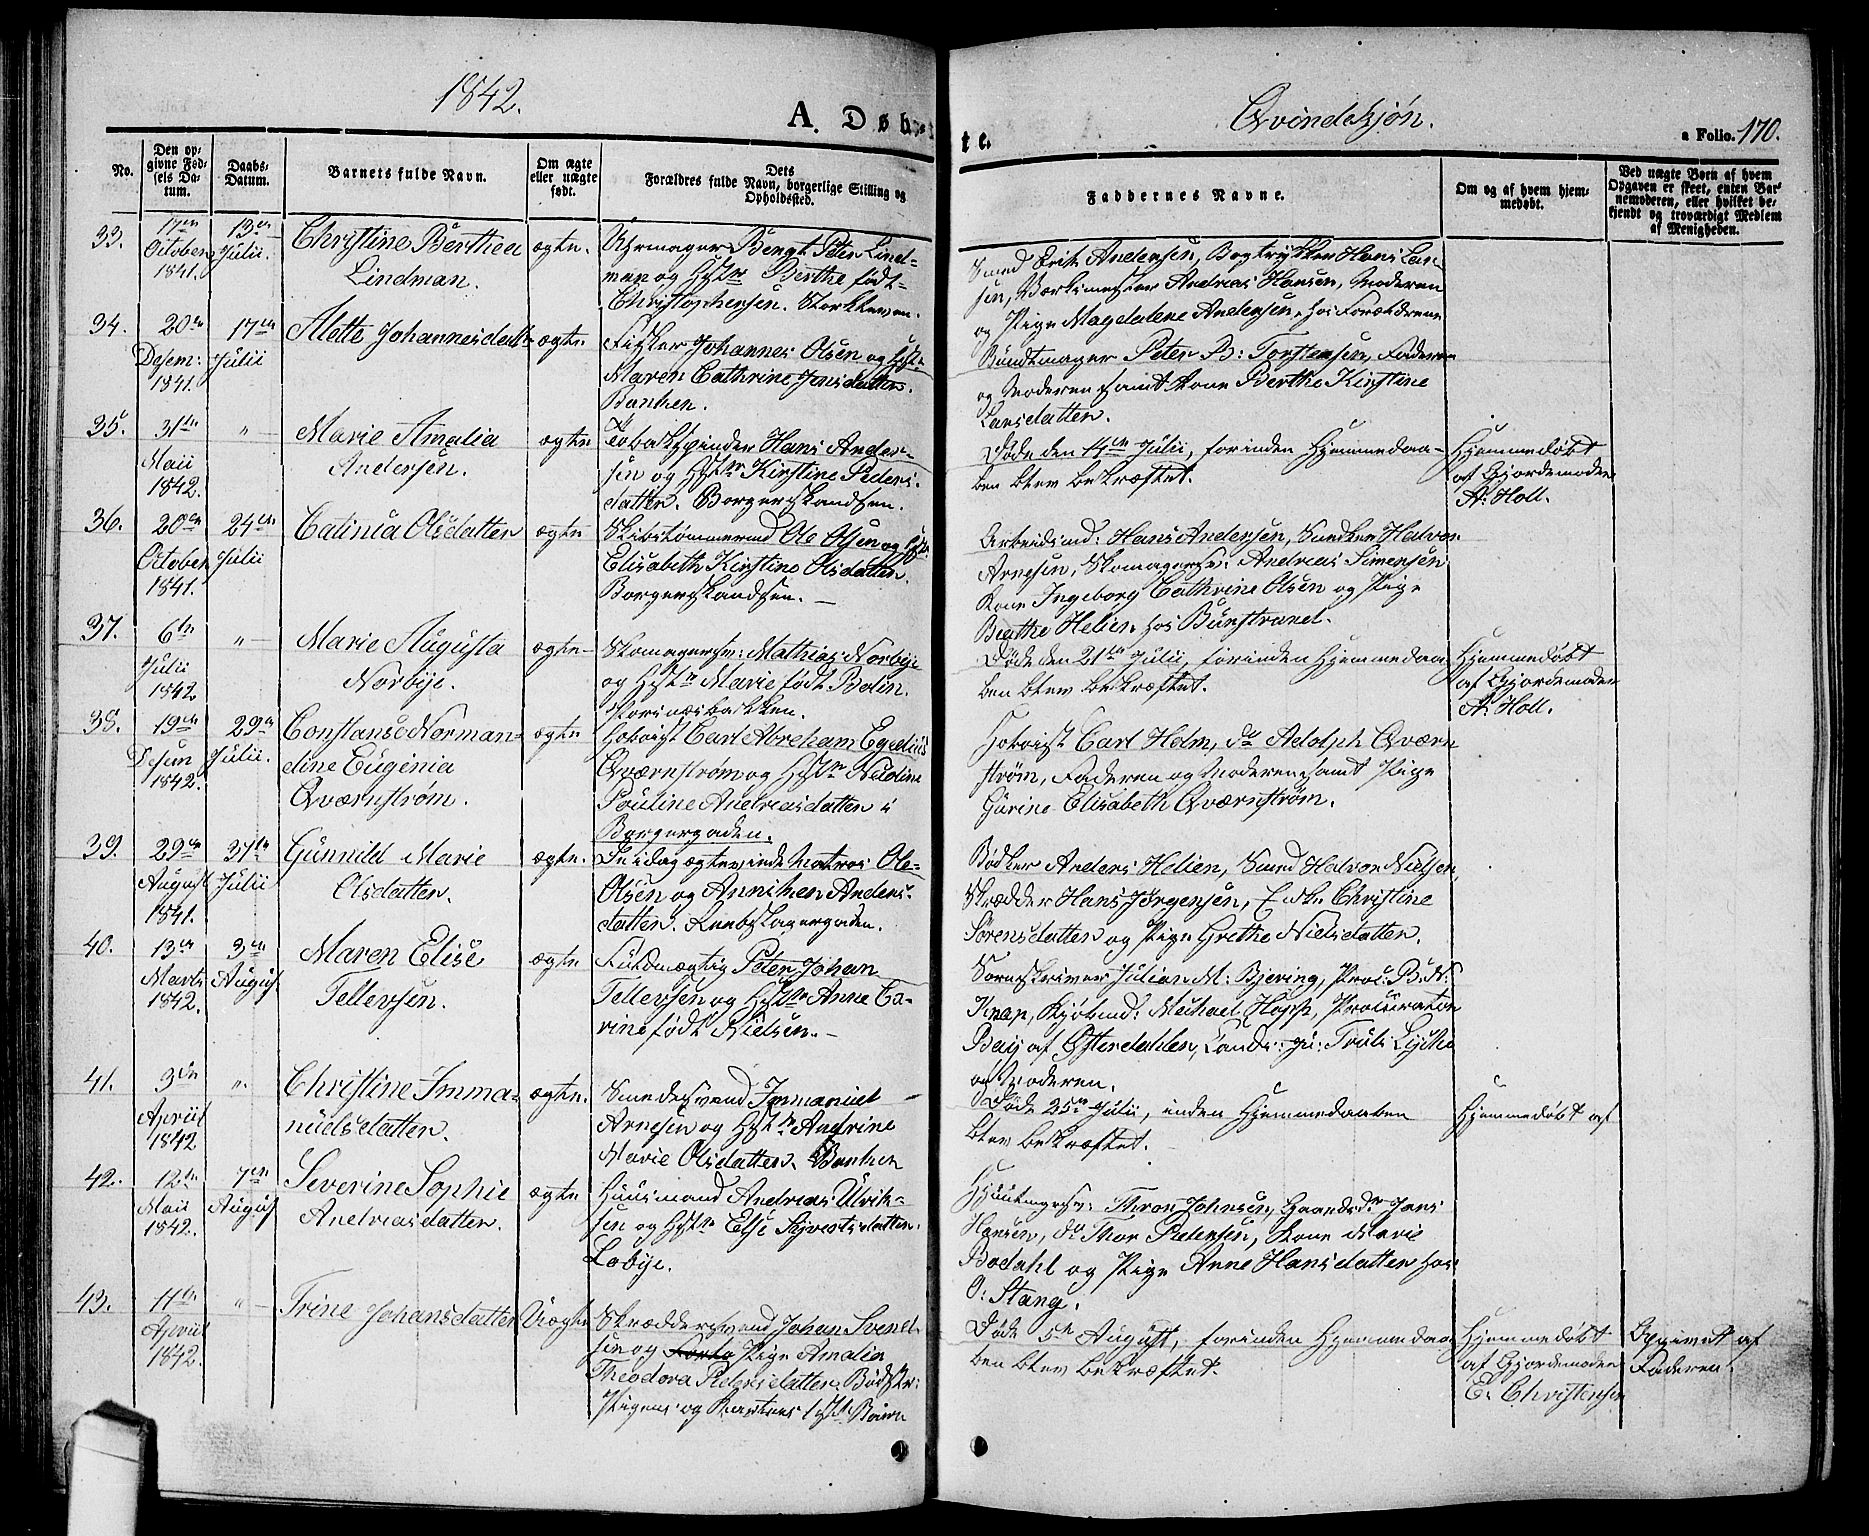 1842.
A. Døbte.
Qvindekjøn.
a Folio. 170.
No.
Den opgivne Fødsels Datum.
Daabs-Datum.
Barnets fulde Navn.
Om ægte eller uægte født.
Dets Forældres fulde Navn, borgerlige Stilling og Opholdssted.
Faddernes Navne.
Om og af hvem hjemmedøbt.
Ved uægte Børn af hvem Opgaven er skeet, enten Barnemoderen, eller hvilket bekjendt og troværdigt Medlem af Menigheden.
33.
17de October 1841.
13de Julii
Christine Berthea
Lindman.
ægte.
Uhrmager Bengt Peter Lind-
man og Hstr Berthe født
Christophersen. Storkleven.
Smed Erik Andersen, Bogtrykker Hans Lar-
sen, Værksmester Andreas Hansen, Moderen
og Pige Magdalene Andersen hos Forældrene
34.
20de Desem: 1841.
17de Julii
Alette Johannesdatter
ægte
Fisker Johannes Olsen og Hstr.
Maren Cathrine Jensdatter.
Banken.
Bundtmager Peter B: Torstensen, Faderen
og Moderen samt Kone Berthe Kirstine
Larsdatter.
35.
31te Maii 1842.
"
Marie Amalia
Andersen.
ægte
Tobakspinder Hans Ander-
sen og Hstr Kirstine Peders-
datter. Borgerskandsen.
Døde den 14de Julii, forinden Hjemmedaa-
ben blev bekræftet.
Hjemmedøbt
af Gjordemoder
A. Holl.
36.
20de October 1841.
24de Julii
Catinia Olsdatter
ægte
Skibstømmermd Ole Olsen og Hstr.
Elisabeth Kirstine Olsdatter.
Borgerskandsen.
Arbeidsmd: Hans Andersen, Snedker Halvor
Arnesen, Skomagersv: Andreas Simensen
Kone Ingeborg Cathrine Olsen og Pige
Berthe Helien hos Buustrand.
37.
6te Julii 1842
"
Marie Augusta
Norbye.
ægte
Skomagersv: Mathias Norbye
og Hstr Marie født Bolin.
Døde den 21de Julii, forinden Hjemmedaa-
ben blev bekræftet.
Hjemmedøbt
af Gjordemoder
A. Holl.
38.
19de 1842.
29de Julii.
Constanse Norman-
dine Eugenia
Qværnstrøm.
ægte
Hoboist Carl Abraham Egedius
Qværnstrøm og Hstr Nicoline
Pouline Andreasdatter i
Borgergaden.
Hoboist Carl Holm, do Adolph Qværn-
strøm, Faderen og Moderen samt Pige
Gurine Elisabeth Qværnstrøm.
39.
29de August 1841.
31te Julii
Gunnild Marie
Olsdatter.
ægte.
De idag ægteviede Matros Ole
Olsen og Anniken Anders-
datter. Reebslagergaden.
Bødker Anders Helien, Smed Halvor Nielsen,
Skrædder Hans Jørgensen, Enke Christine
Sørensdatter og Pige Grethe Nielsdatter.
40.
13de Marts 1842.
3de August
Maren Elise
Tellevsen.
ægte
Fuldmægtig Peter Johan
Tellevsen og Hstr Anne Ca-
rine født Nielsen.
Sorenskriver Julius M: Bjering, Proc: B. N.
Knap, Kjøbmd: Michael Hopp, Procurator
Bay af Østerdalen, Truls Lycke
og Moderen.
41.
3de April 1842
"
Christine Imma-
nuelsdatter.
ægte.
Smedesvend Immanuel
Arnesen og Hstr Andrine
Marie Olsdatter. Banken
Døde 25de Julii, inden Hjemmedaaben
blev bekræftet.
Hjemmedøbt af
42.
12te Maii 1842.
7de August
Severine Sophie
Andreasdatter.
ægte
Huusmand Andreas Ulrik-
sen og Hstr Else Syvertsdatter.
Labye.
Thron Johnsen, Jens
Hansen, do Thor Pedersen, Kone Marie
Bodahl og Pige Anne Hansdatter hos
O. Stang.
43.
11te April 1842.
"
Trine Johansdatter
Uægte
Skræddersvend Johan Svend-
sen og Pige Amalia
Theodora Pedersdatter.
Pigens og Karlens 1ste Barn
Døde 5te August, forinden Hjemmedaa-
ben blev bekræftet.
Hjemmedøbt
af Gjordemoder
E. Christensen
Opgivet af
Faderen.